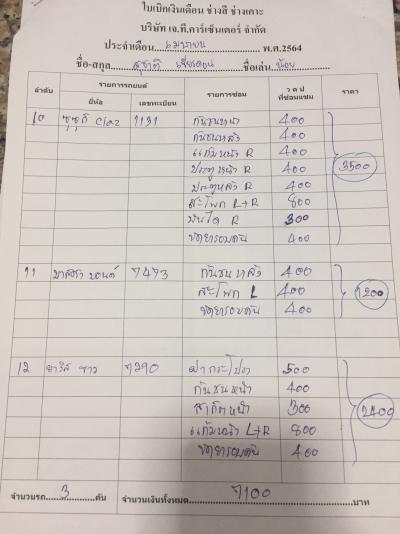 ใบเบิกเงินเดือน ช่างสี ช่างเคาะ
บริษัท เจ.ที.คาร์เซ็นเตอร์ จำกัด
ประจำเดือน เมษายน พ.ศ.2564
ชื่อ-สกุล สุชาติ ชื่อเล่น น้อย
ลำดับ รายการรถยนต์ รายการซ่อม ว ด ป ที่ซ่อมแซม ราคา
ยี่ห้อ เลขทะเบียน
10 ซูซูกิ Ciaz 1131 กันชนหน้า 400
กันชนหลัง 400
แก้มหน้า R 400
ประตูหน้า R 400 3500
ประตูหลัง R 400
สะโพก L+R 800
บันได R 300
ขัดยารอบคัน 400
11 มาสด้า 7473 กันชนหลัง 400
สะโพก L 400 1200
ขัดยารอบคัน 400
12 ยาริส ขาว 7290 ฝากระโปรง 500
กันชนหน้า 400
หน้า 300 2400
แก้มหน้า L+R 800
ขัดยารอบคัน 400
จำนวนรถ 3 คัน จำนวนเงินทั้งหมด 7100 บาท